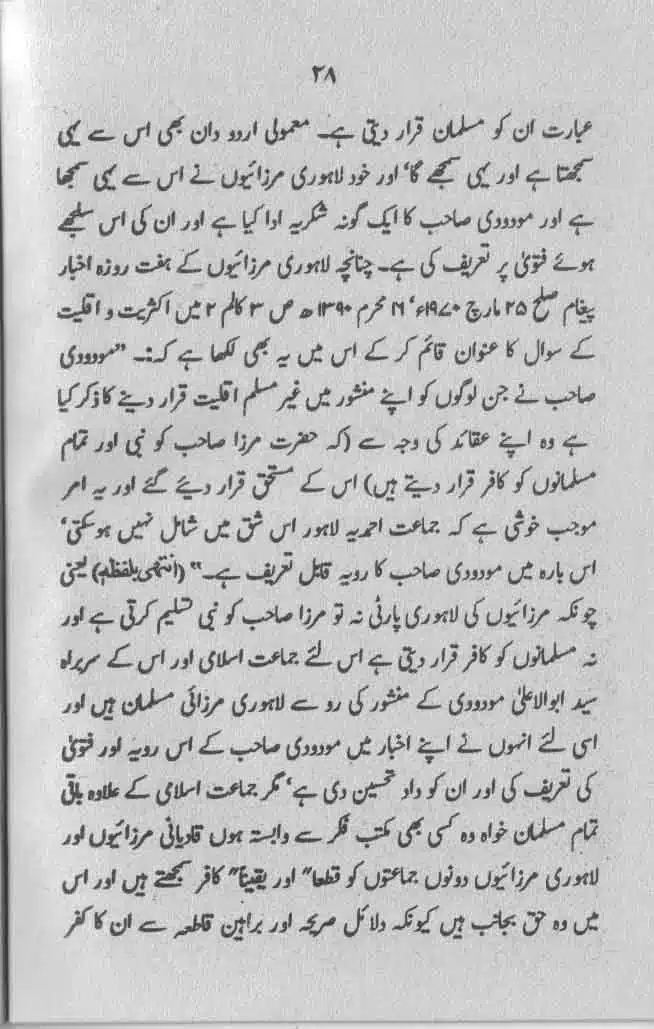 ۲۸
عبارت ان کو مسلمان قرار دیتی ہے۔ معمولی اردو دان بھی اس سے یہی
سمجھتا ہے اور یہی سمجھے گا‘ اور خود لاہوری مرزائیوں نے اس سے یہی سمجھا
ہے اور مودودی صاحب کا ایک گونہ شکریہ ادا کیا ہے اور ان کی اس سلجھے
ہوئے فتویٰ پر تعریف کی ہے۔ چنانچہ لاہوری مرزائیوں کے ہفت روزہ اخبار
پیغام صلح ۲۵ مارچ ۱۹۷۰ء‘ ۱۶ محرم ۱۳۹۰ھ ص ۳ کالم ۲ میں اکثریت و اقلیت
کے سوال کا عنوان قائم کر کے اس میں یہ بھی لکھا ہے کہ:۔ "مودودی
صاحب نے جن لوگوں کو اپنے منشور میں غیر مسلم اقلیت قرار دینے کا ذکر کیا
ہے وہ اپنے عقائد کی وجہ سے (کہ حضرت مرزا صاحب کو نبی اور تمام
مسلمانوں کو کافر قرار دیتے ہیں) اس کے مستحق قرار دیئے گئے اور یہ امر
موجب خوشی ہے کہ جماعت احمدیہ لاہور اس شق میں شامل نہیں ہو سکتی‘
اس بارہ میں مودودی صاحب کا رویہ قابل تعریف ہے۔" (انتھی بلفظہ) یعنی
چونکہ مرزائیوں کی لاہوری پارٹی نہ تو مرزا صاحب کو نبی تسلیم کرتی ہے اور
نہ مسلمانوں کو کافر قرار دیتی ہے اس لئے جماعت اسلامی اور اس کے سربراہ
سید ابوالاعلیٰ مودودی کے منشور کی رو سے لاہوری مرزائی مسلمان ہیں اور
اسی لئے انہوں نے اپنے اخبار میں مودودی صاحب کے اس رویہ اور فتویٰ
کی تعریف کی اور ان کو داد تحسین دی ہے‘ مگر جماعت اسلامی کے علاوہ باقی
تمام مسلمان خواہ وہ کسی بھی مکتب فکر سے وابستہ ہوں قادیانی مرزائیوں اور
لاہوری مرزائیوں دونوں جماعتوں کو قطعا" اور یقیناً" کافر سمجھتے ہیں اور اس
میں وہ حق بجانب ہیں کیونکہ دلائل صریحہ اور براہین قاطعہ سے ان کا کفر